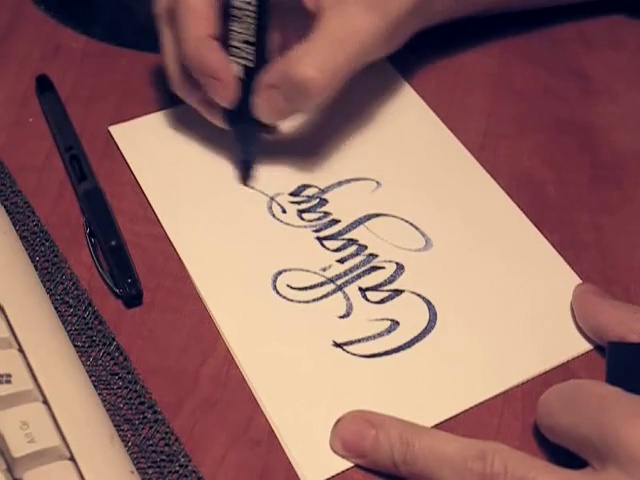 Calligrap
Alt Gr